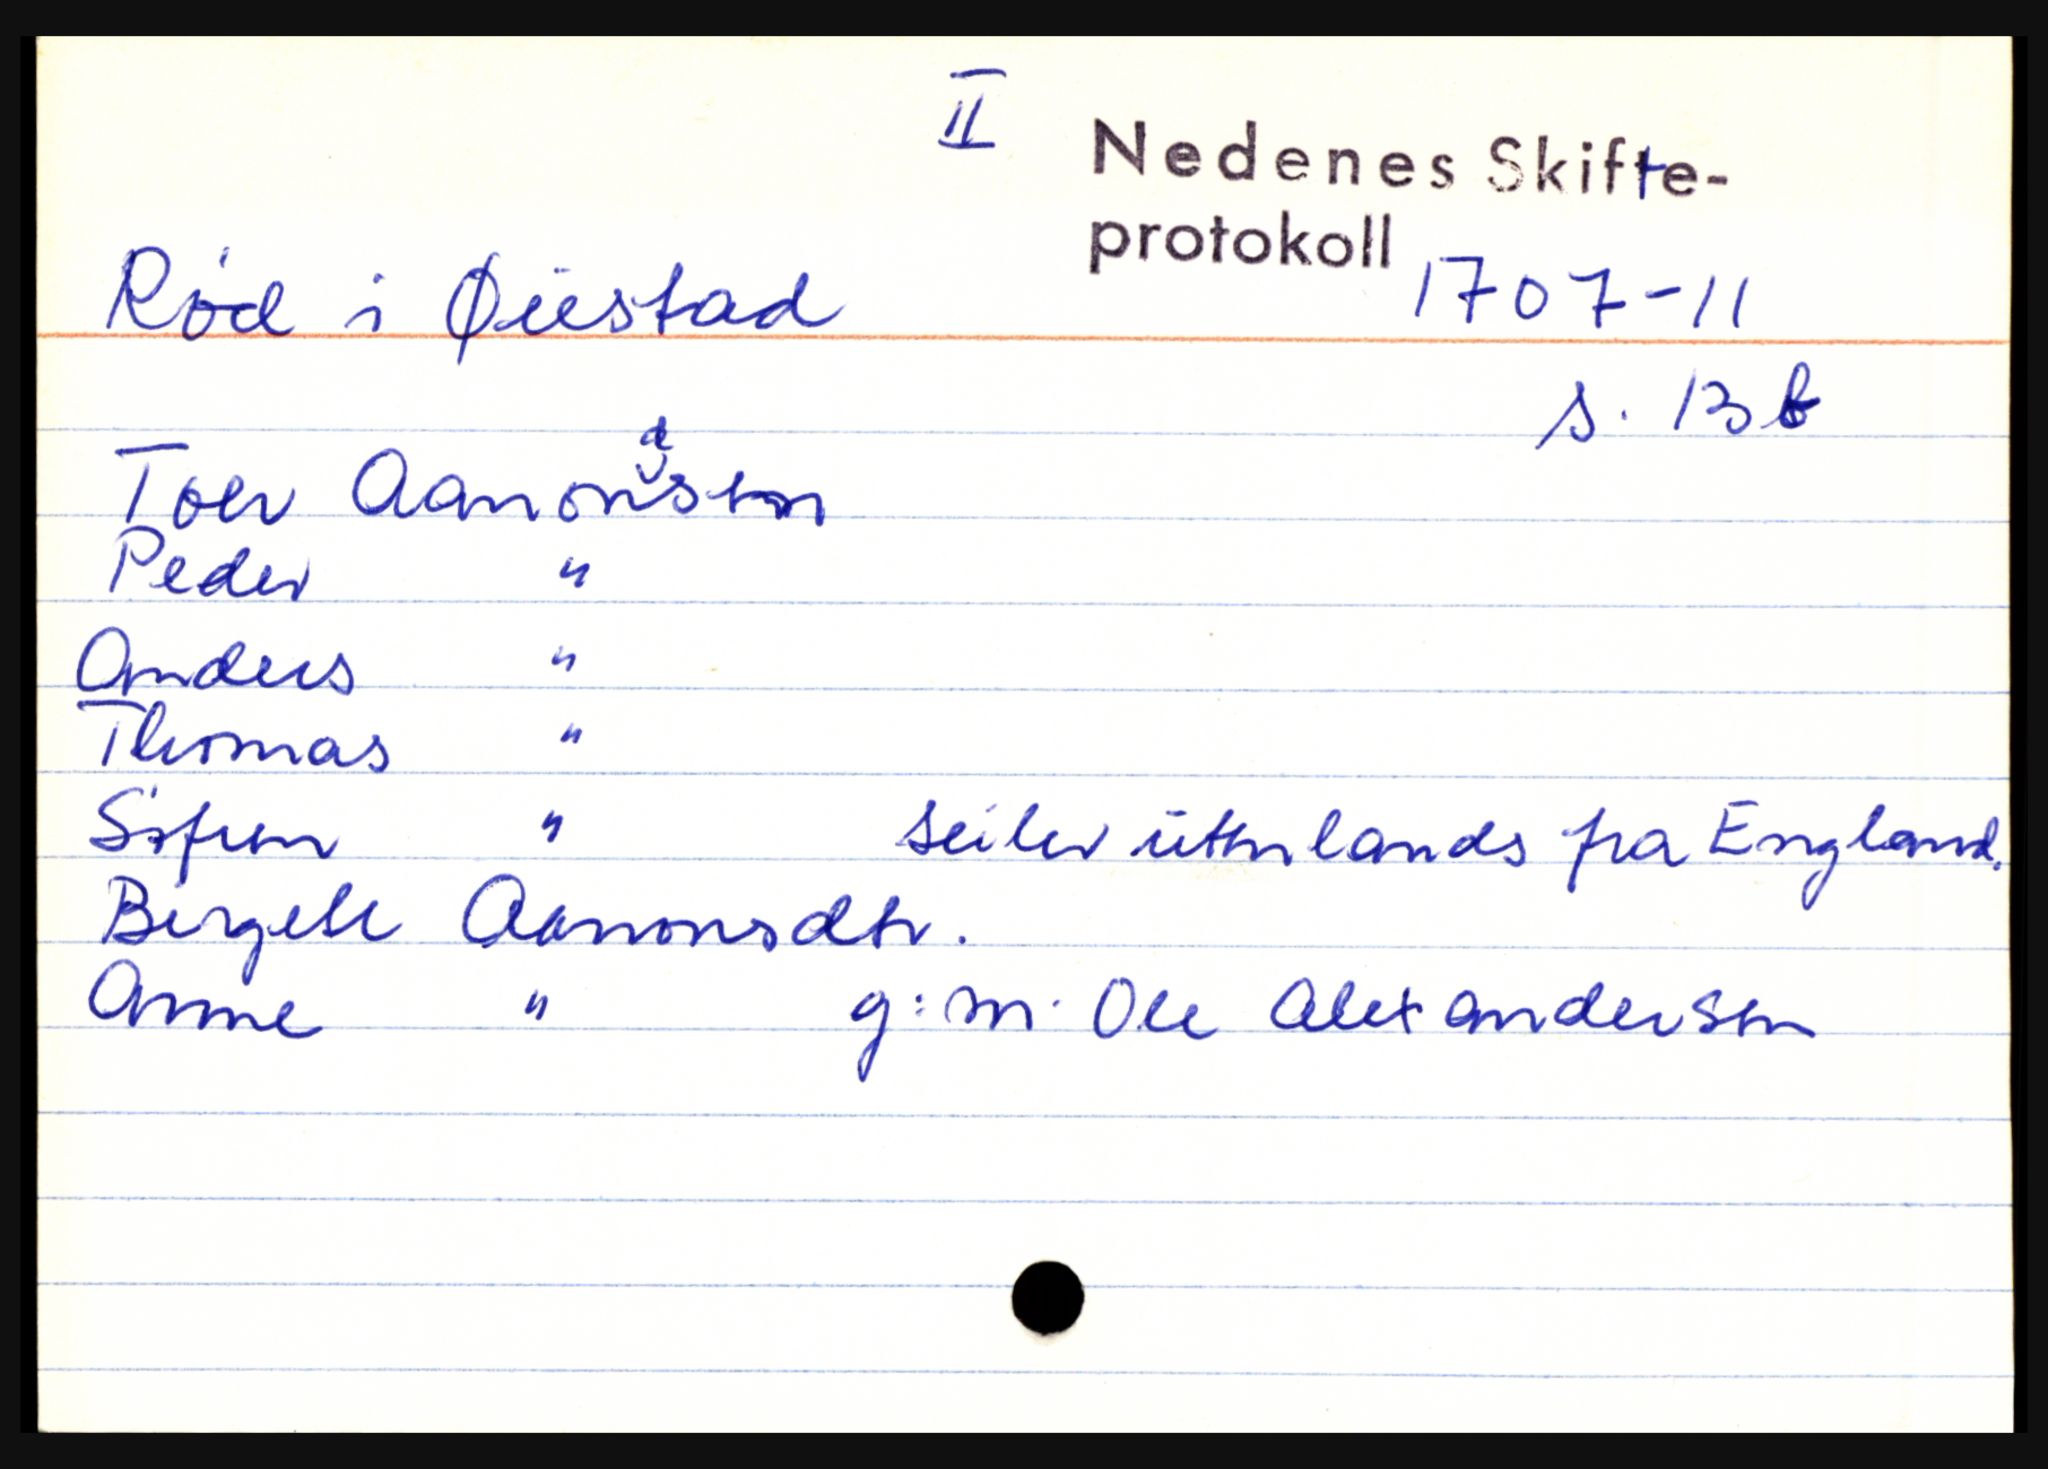 II
Nedenes Skifte-
protokoll 1707-11
Rød i Øiestad
s. 13 b
Toer Aanondsen
Peder "
Anders "
Thomas "
Søfren " seiler uttnlands fra England.
Birgete Aanonsdtr.
Anne " g: m. Ole Alexandersen